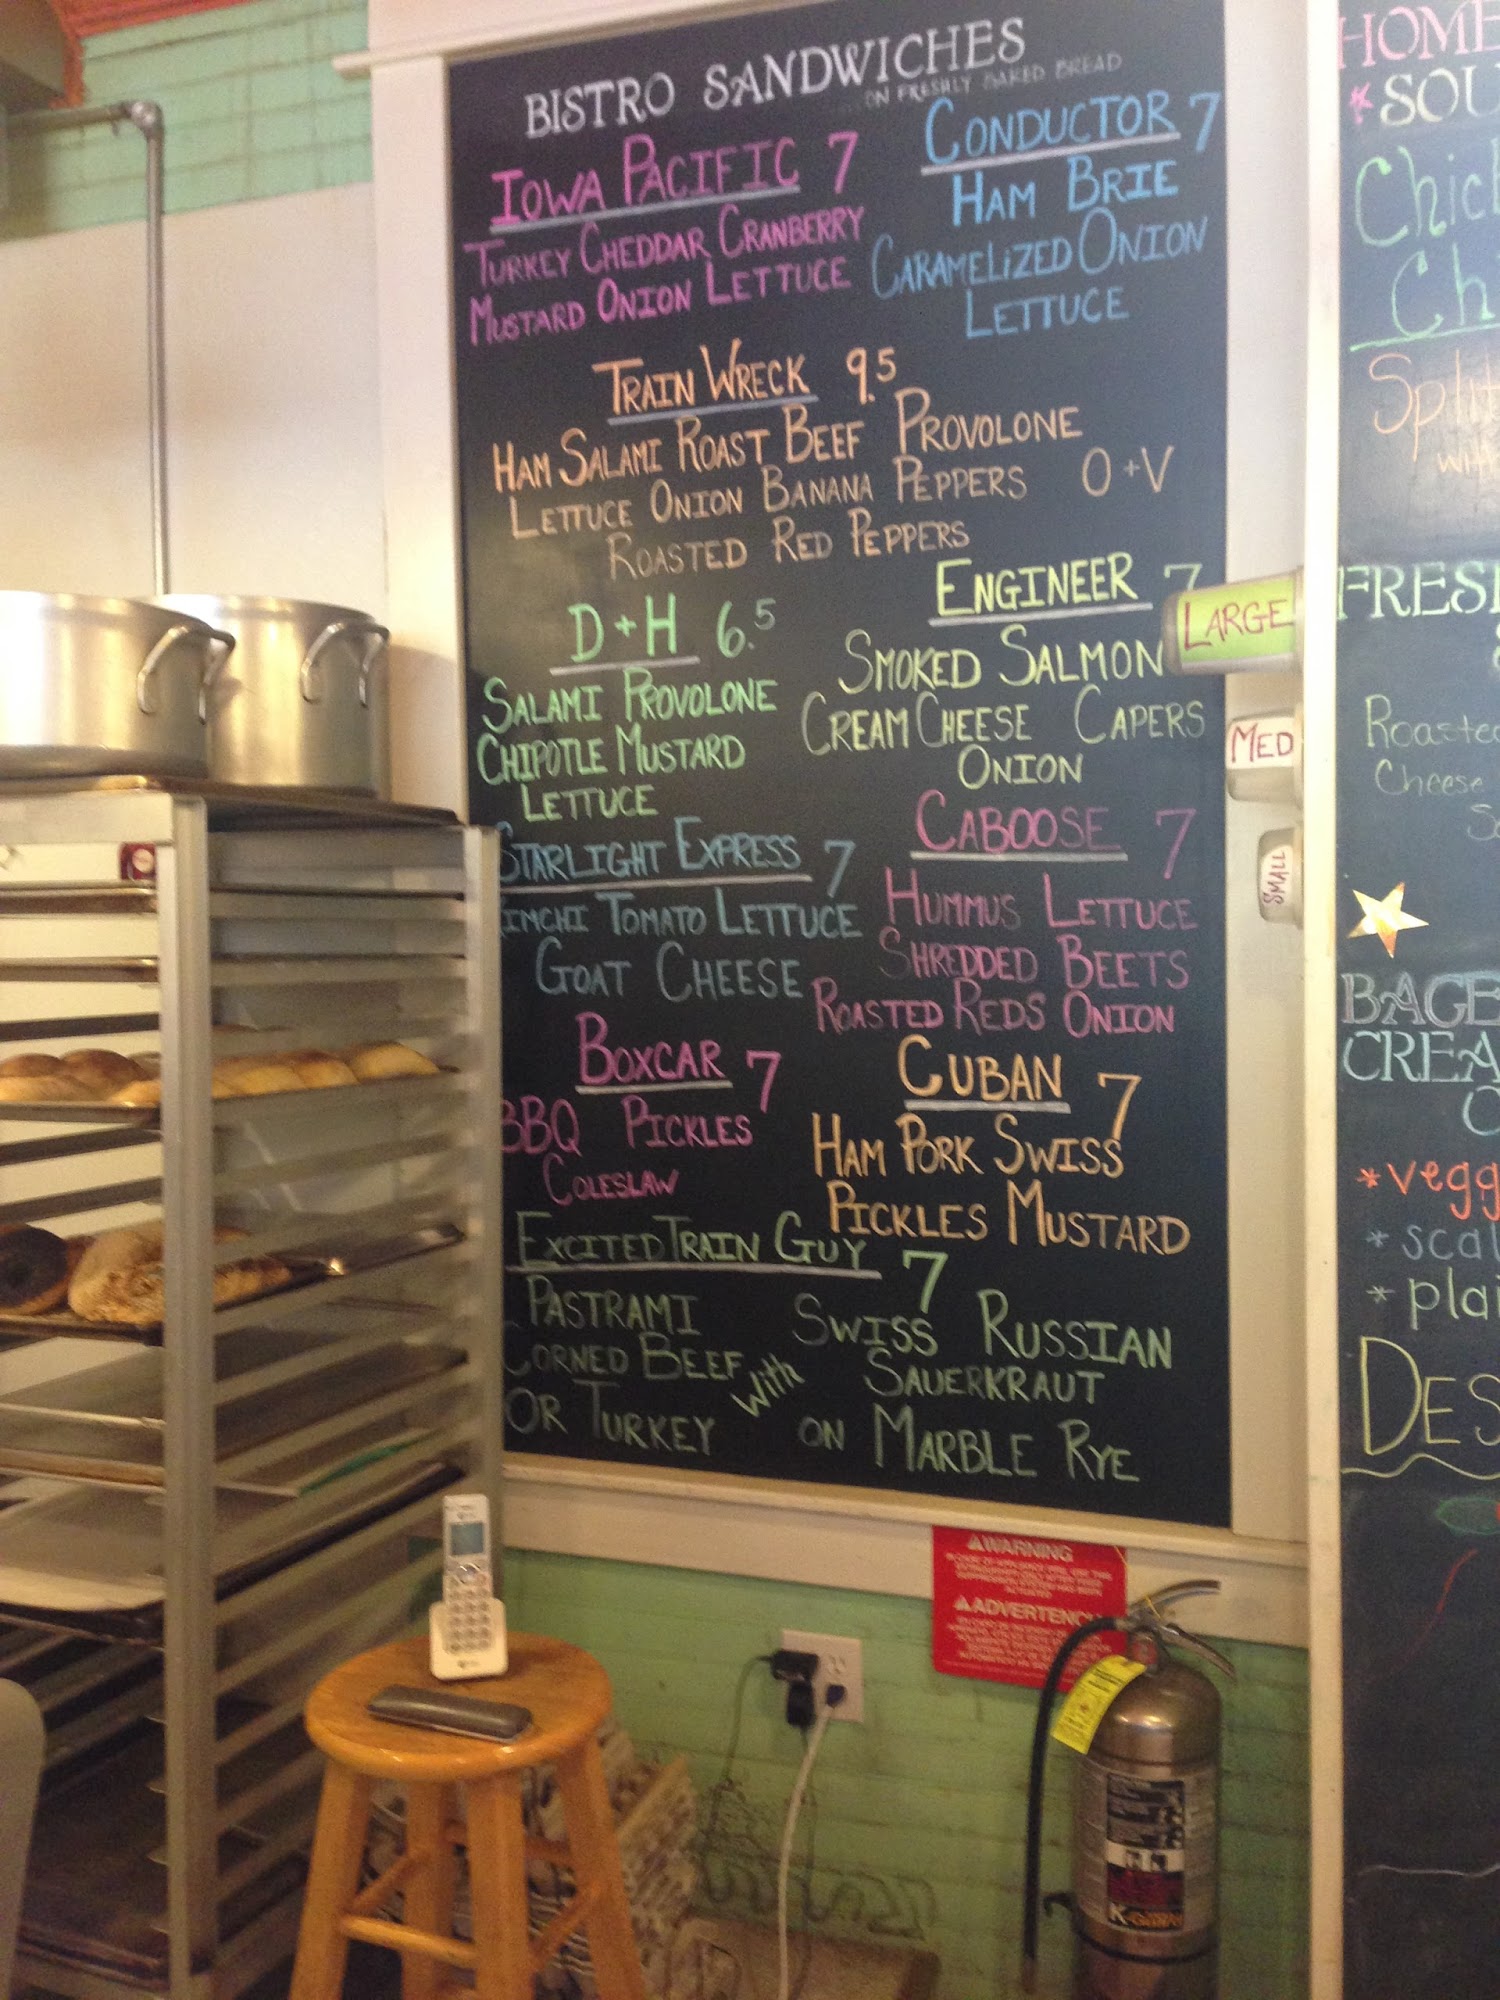 BISTRO SANDWICHES
ON FRESHLY BAKED BREAD
IOWA PACIFIC 7
TURKEY CHEDDAR CRANBERRY
MUSTARD ONION LETTUCE
CONDUCTOR 7
HAM BRIE
CARAMELIZED ONION
LETTUCE
TRAIN WRECK 9.5
HAM SALAMI ROAST BEEF PROVOLONE
LETTUCE ONION BANANA PEPPERS O+V
ROASTED RED PEPPERS
D+H 6.5
SALAMI PROVOLONE
CHIPOTLE MUSTARD
LETTUCE
ENGINEER 7
SMOKED SALMON
CREAM CHEESE CAPERS
ONION
STARLIGHT EXPRESS 7
IMCHI TOMATO LETTUCE
GOAT CHEESE
CABOOSE 7
HUMMUS LETTUCE
SHREDDED BEETS
ROASTED REDS ONION
BOXCAR 7
BBQ PICKLES
COLESLAW
CUBAN 7
HAM PORK SWISS
PICKLES MUSTARD
EXCITED TRAIN GUY 7
PASTRAMI
CORNED BEEF
OR TURKEY
WITH
SWISS RUSSIAN
SAUERKRAUT
ON MARBLE RYE
LARGE
MED
SMALL
HOME
*SOU
Chic
Ch
Split
FRES
Roasted
Cheese
BAGE
CREA
*vegg
*scal
*plai
DES
WARNING
ADVERTENC